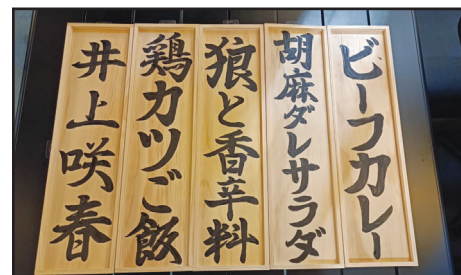 ビーフカレー
胡麻ダレサラダ
狼と香辛料
鶏カツご飯
井上咲春